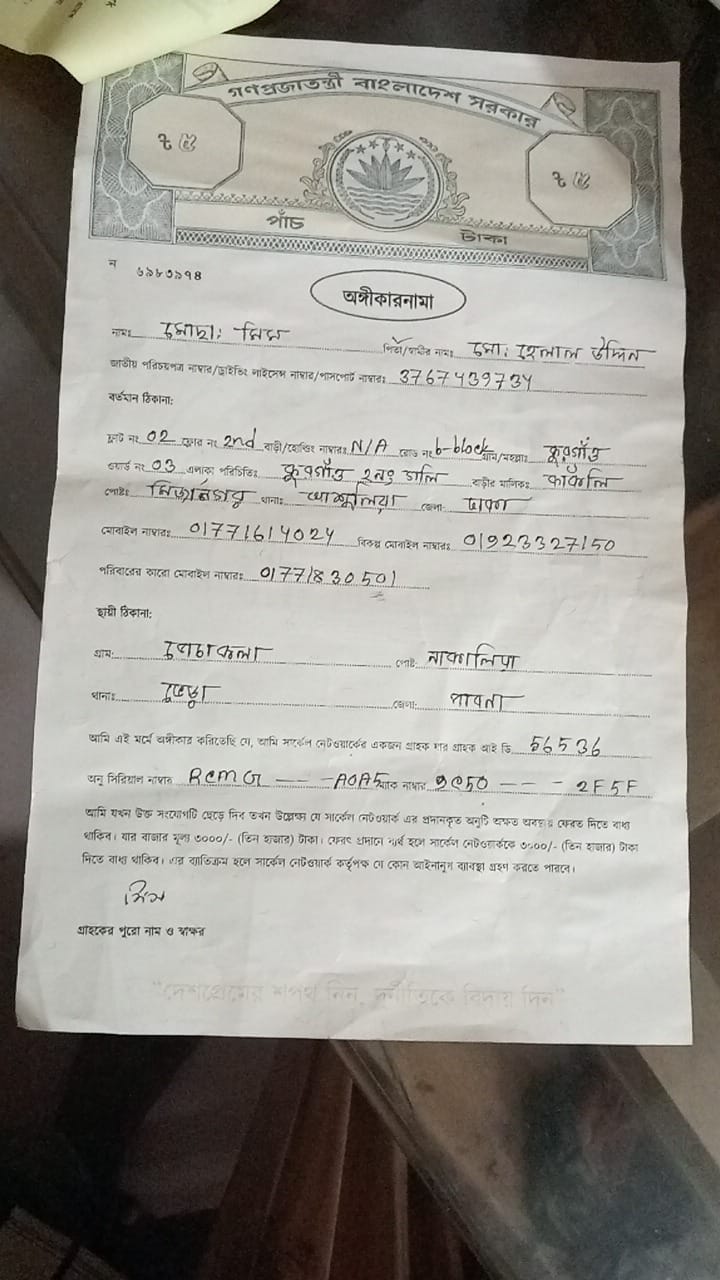 গণপ্রজাতন্ত্রী বাংলাদেশ সরকার
৳ ৫ ৳ ৫
পাঁচ টাকা
ন ৬৯৮৩৯৭৪
অঙ্গীকারনামা
নামঃ মোছা: মিম পিতা/স্বামীর নামঃ মো: হেলাল উদ্দিন
জাতীয় পরিচয়পত্র নাম্বার/ড্রাইভিং লাইসেন্স নাম্বার/পাসপোর্ট নাম্বারঃ 3767439734
বর্তমান ঠিকানা:
ফ্লাট নং 02 ফ্লোর নং 2nd বাড়ী/হোল্ডিং নাম্বারঃ N/A রোড নং b-block গ্রাম/মহল্লাঃ কুরগাঁও
ওয়ার্ড নং 03 এলাকা পরিচিতিঃ কুরগাঁও ২নং গলি বাড়ীর মালিকঃ কাকলি
পোষ্টঃ মির্জানগর থানাঃ আশুলিয়া জেলা: ঢাকা
মোবাইল নাম্বারঃ 01771614024 বিকল্প মোবাইল নাম্বারঃ 01923327150
পরিবারের কারো মোবাইল নাম্বারঃ 01771830501
স্থায়ী ঠিকানা:
গ্রাম: পেচাকলা পোষ্ট: নাকালিয়া
থানাঃ জেলা: পাবনা
আমি এই মর্মে অঙ্গীকার করিতেছি যে, আমি সার্কেল নেটওয়ার্কের একজন গ্রাহক যার গ্রাহক আই ডি 56536
অনু সিরিয়াল নাম্বার RCMG --- -A0A5 ম্যাক নাম্বার 9C50 --- - 2F5F
আমি যখন উক্ত সংযোগটি ছেড়ে দিব তখন উল্লেক্ষ্য যে সার্কেল নেটওয়ার্ক এর প্রদানকৃত অনুটি অক্ষত অবস্থায় ফেরত দিতে বাধ্য
থাকিব। যার বাজার মূল্য ৩০০০/- (তিন হাজার) টাকা। ফেরৎ প্রদানে ব্যর্থ হলে সার্কেল নেটওয়ার্ককে ৩০০০/- (তিন হাজার) টাকা
দিতে বাধ্য থাকিব। এর ব্যাতিক্রম হলে সার্কেল নেটওয়ার্ক কর্তৃপক্ষ যে কোন আইনানুগ ব্যাবস্থা গ্রহণ করতে পারবে।
মিম
গ্রাহকের পুরো নাম ও স্বাক্ষর
"দেশপ্রেমের শপথ নিন, দুর্নীতিকে বিদায় দিন"